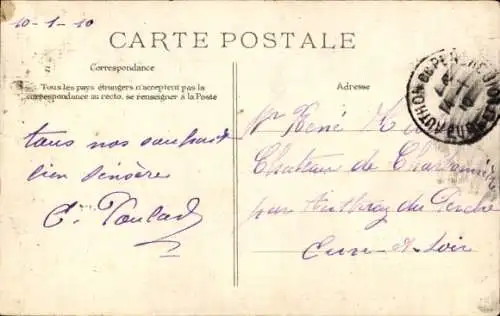 10-1-10
CARTE POSTALE
Correspondance
Tous les pays étrangers n'acceptent pas la
correspondance au recto, se renseigner à la Poste
Adresse
tous nos souhaits
bien sincère
Mr René
Chateau de
par Authon du Perche
Eure et Loir
AUTHON DU PERCHE